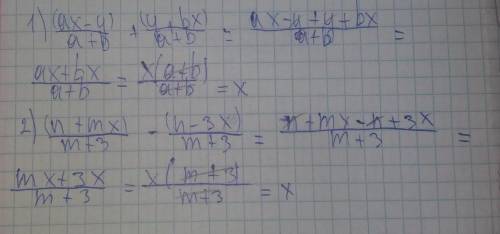 1) (ax-y)/(a+b) + (y+bx)/(a+b) = (ax-y+y+bx)/(a+b) =
(ax+bx)/(a+b) = x(a+b)/(a+b) = x
2) (n+mx)/(m+3) - (n-3x)/(m+3) = (n+mx-n+3x)/(m+3) =
(mx+3x)/(m+3) = x(m+3)/(m+3) = x